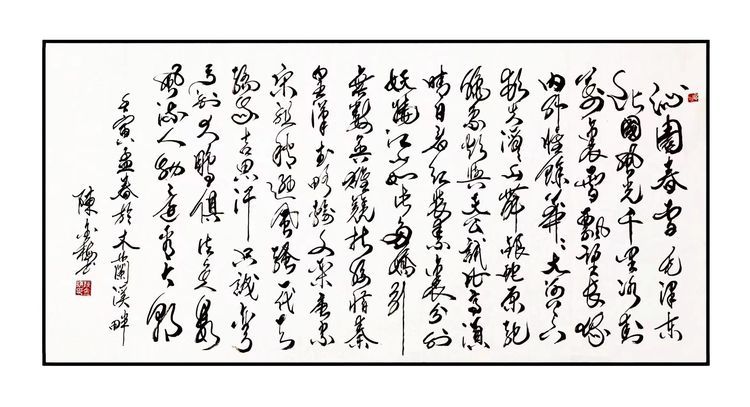 沁園春雪 毛澤東
北國風光千里冰封
萬里雪飄望長城
内外惟餘莽莽大河上下
頓失滔滔山舞銀蛇原馳
蠟象欲與天公試比高須
晴日看紅裝素裹分外
妖嬈江山如此多嬌引
無數英雄競折腰惜秦
皇漢武略輸文采唐宗
宋祖稍遜風騷一代天
驕成吉思汗只識彎
弓射大雕俱往矣數
風流人物還看今朝
壬寅孟春於木蘭溪畔
陳